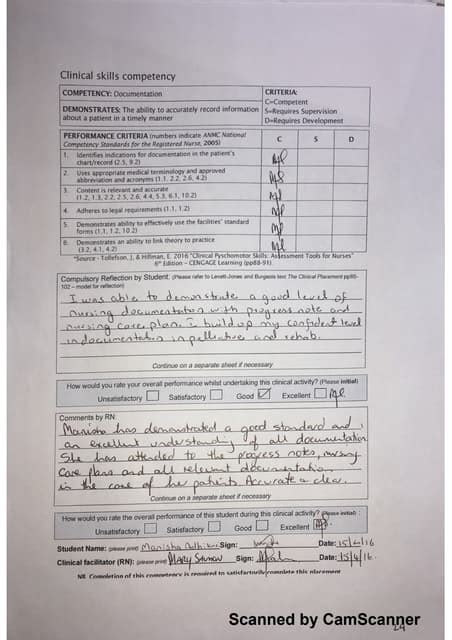 Clinical skills competency
COMPETENCY: Documentation
CRITERIA:
C=Competent
DEMONSTRATES: The ability to accurately record information
about a patient in a timely manner
S=Requires Supervision
D=Requires Development
PERFORMANCE CRITERIA (numbers indicate ANMC National
Competency Standards for the Registered Nurse, 2005)
C S D
1. Identifies indications for documentation in the patient's
chart/record (2.5, 9.2)
2. Uses appropriate medical terminology and approved
abbreviation and acronyms (1.1, 2.2, 2.6, 4.2)
3. Content is relevant and accurate
(1.2, 1.3, 2.2, 2.5, 2.6, 4.4, 5.3, 6.1, 10.2)
4. Adheres to legal requirements (1.1, 1.2)
5. Demonstrates ability to effectively use the facilities' standard
forms (1.1, 1.2, 10.2)
6. Demonstrates an ability to link theory to practice
(3.2, 4.1, 4.2)
*Source - Tollefson, J, & Hillman, E. 2016 "Clinical Pyschomotor Skills: Assessment Tools for Nurses"
6th Edition – CENGAGE Learning (pp88-91)
Compulsory Reflection by Student: (Please refer to Levett-Jones and Burgeois text The Clinical Placement pp85-
102 – model for reflection)
I was able to demonstrate a good level of
nursing documentation with progress note and
nursing care plan. I build up my confident level
in documentation in palliative and rehab.
Continue on a separate sheet if necessary
How would you rate your overall performance whilst undertaking this clinical activity? (Please initial)
Unsatisfactory Satisfactory Good Excellent
Comments by RN:
Manisha has demonstrated a good standard and
an excellent understanding of all documentation
She has attended to the progress notes, nursing
Care plans and all relevant documentation
in the care of her patients. Accurate & clear.
Continue on a separate sheet if necessary
How would you rate the overall performance of this student during this clinical activity? (Please initial)
Unsatisfactory Satisfactory Good Excellent
Student Name: (please print) Manisha Sign: Date: 15/4/16
Clinical facilitator (RN): (please print) MARY Sign: Date: 15/4/16.
NB. Completion of this competency is required to satisfactorily complete this placement
Scanned by CamScanner